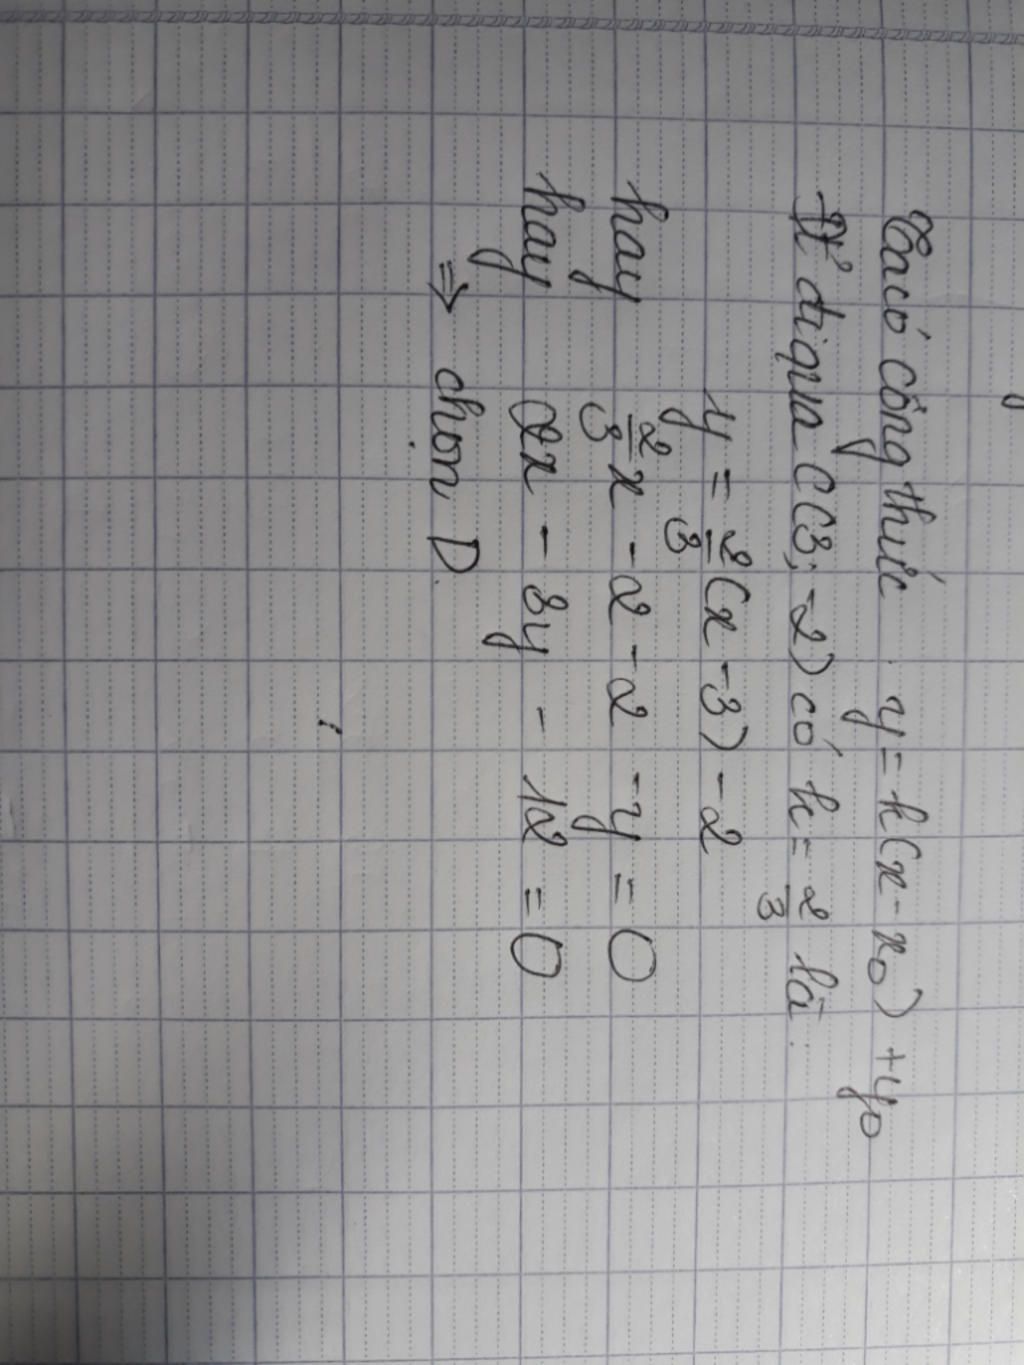 Ta có công thức y = k(x - x₀) + y₀
đi qua C(3; -2) có k = 2/3 là
y = 2/3(x - 3) - 2
hay 2/3 x - 2 - 2 - y = 0
hay 2x - 3y - 12 = 0
⇒ chọn D.